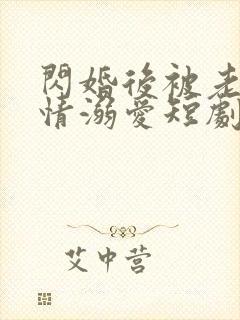 閃婚後被老
情溺愛短劇
艾中营